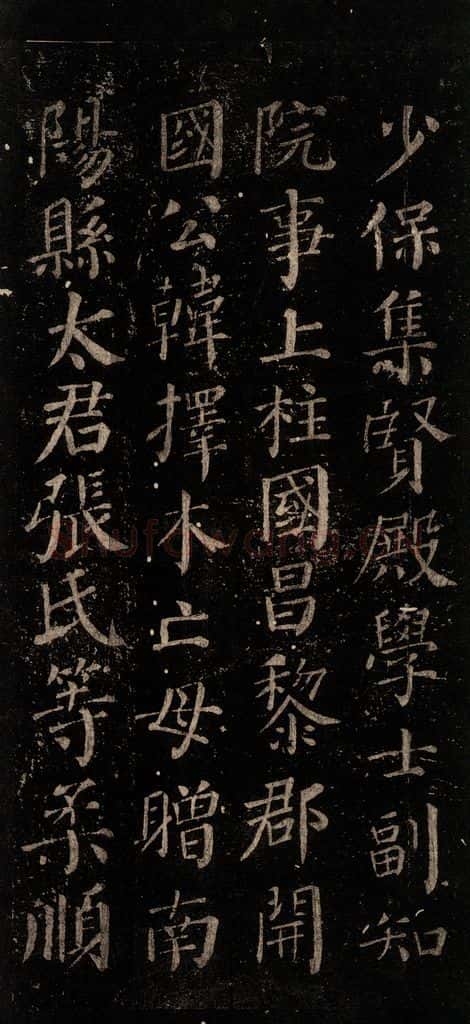 少保集賢殿學士副知
院事上柱國昌黎郡開
國公韓擇木亡母贈南
陽縣太君張氏等柔順
shufawang.cn